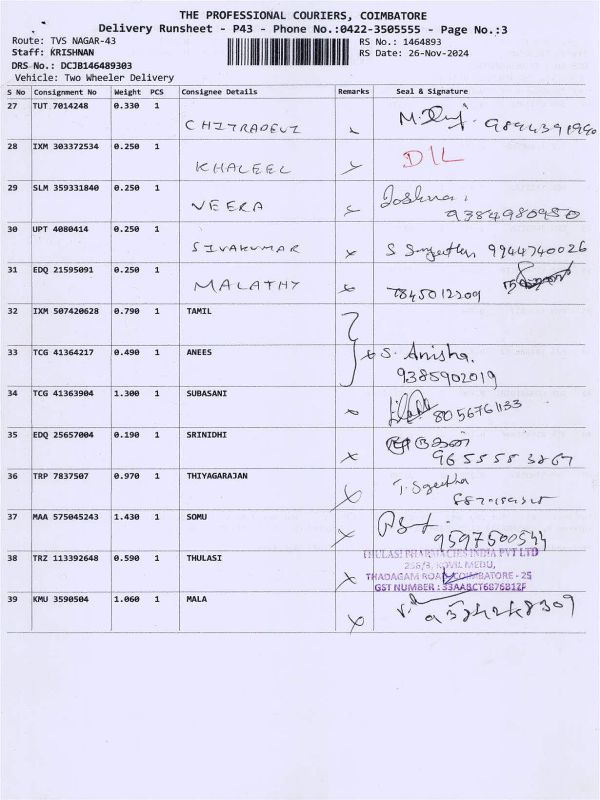 THE PROFESSIONAL COURIERS, COIMBATORE
Delivery Runsheet - P43 - Phone No.:0422-3505555 - Page No.:3
Route: TVS NAGAR-43
RS No.: 1464893
Staff: KRISHNAN
RS Date: 26-Nov-2024
DRS No.: DCJB146489303
Vehicle: Two Wheeler Delivery
S No Consignment No Weight PCS Consignee Details Remarks Seal & Signature
27 TUT 7014248 0.330 1
CHITRADEVI
28 IXM 303372534 0.250 1
KHALEEL DIL
29 SLM 359331840 0.250 1
VEERA Joshna
9384980950
30 UPT 4080414 0.250 1
SIVAKUMAR 9944740026
31 EDQ 21595091 0.250 1
MALATHY
7845012209
32 IXM 507420628 0.790 1 TAMIL
33 TCG 41364217 0.490 1 ANEES S. Anisha.
9385902019
34 TCG 41363904 1.300 1 SUBASANI
8056761133
35 EDQ 25657004 0.190 1 SRINIDHI
9655553867
36 TRP 7837507 0.970 1 THIYAGARAJAN
37 MAA 575045243 1.430 1 SOMU
9597500544
38 TRZ 113392648 0.590 1 THULASI
THULASI PHARMACIES INDIA PVT LTD
256/3, KOVIL MEDU,
THADAGAM ROAD, COIMBATORE - 25
GST NUMBER : 33AABCT6876B1ZF
39 KMU 3590504 1.060 1 MALA